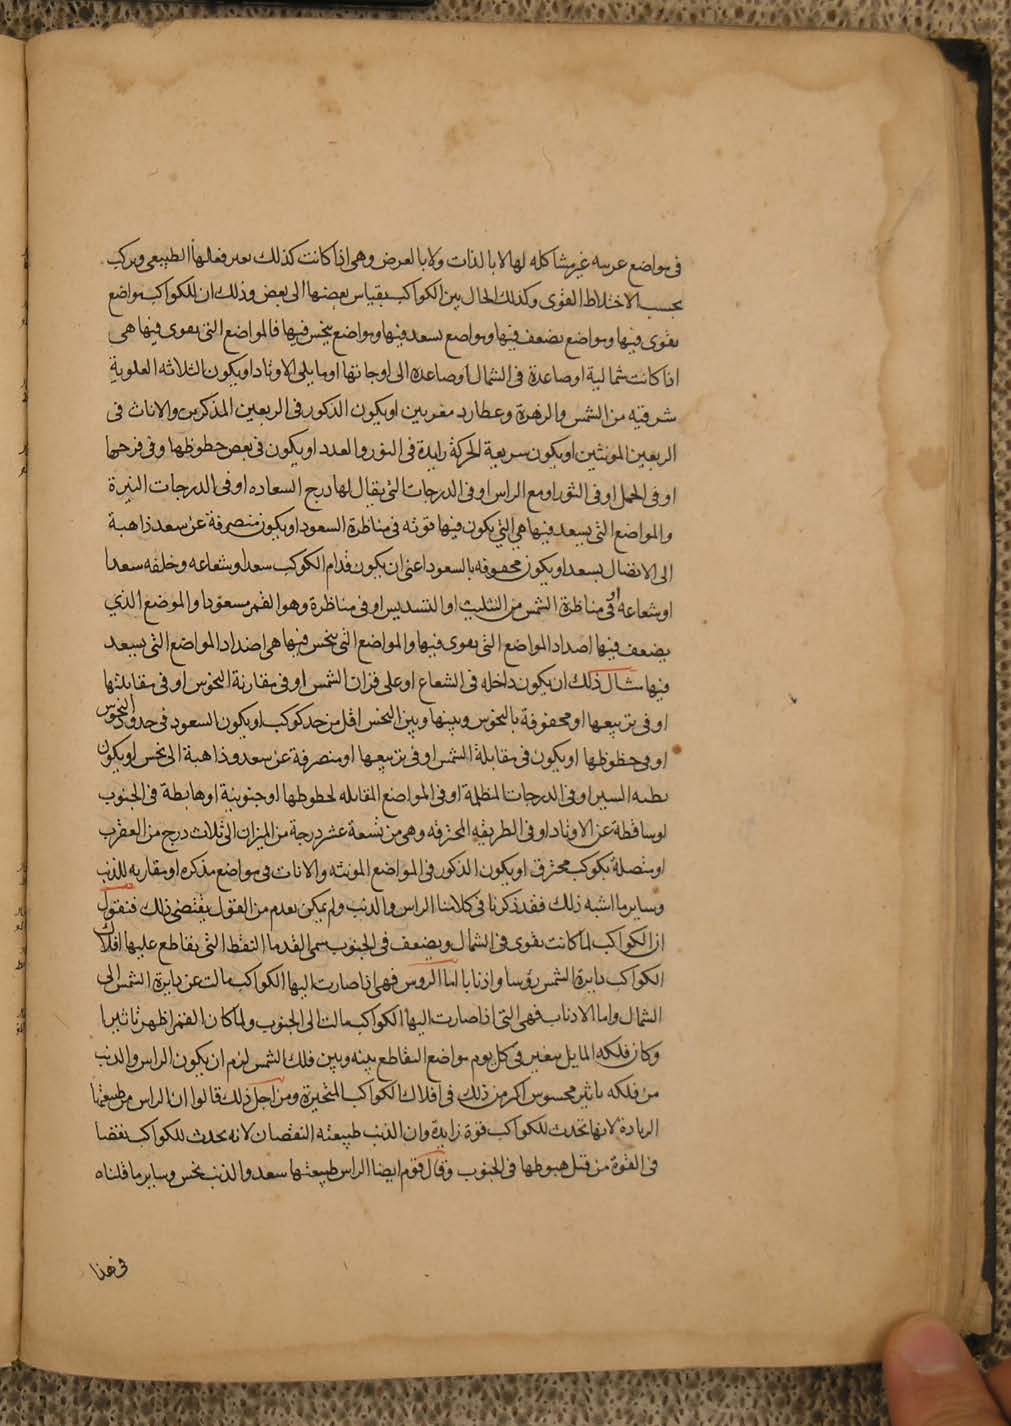 فى مواضع عرىىه غير مشاكله لها لا بالذات ولا بالعرض وهى اذا كانت كذلك تغير فعلها الطبيعى وتركب
بحسب الاختلاط القوى وكذلك الحال بين الكواكب بقياس بعضها الى بعض وذلك ان للكواكب مواضع
تقوى فيها ومواضع تضعف فيها ومواضع تسعد فيها ومواضع تنحس فيها فالمواضع التى تقوى فيها هى
اذا كانت شمالية او صاعدة فى الشمال او صاعدة الى اوجاتها او ما يلى الاوتاد او يكون الثلاثه العلوية
شرقيه من الشمس والزهرة وعطارد مغربين او يكون الذكور فى الربعين المذكرين والاناث فى
الربعين المونثين او يكون سريعة الحركة زايدة فى النور والعدد او يكون فى بعض حظوظها وفى فرحها
او فى الحمل او فى الثور او مع الراس او فى الدرجات التى يقال لها درج السعاده او فى الدرجات النيرة
والمواضع التى يسعد فيها هى التى يكون فيها قوته فى مناظرة السعود او يكون منصرفة عن سعد ذاهبة
الى الاتصال بسعد او يكون محفوفه بالسعود اعنى ان يكون قدام الكوكب سعدا وشعاعه وخلفه سعدا
او شعاعه او فى مناظرة الشمس من التثليث او التسديس او فى مناظرة وهو القمر مسعودا والموضع الذى
يضعف فيها اضداد المواضع التى يقوى فيها والمواضع التى ينحس فيها هى اضداد المواضع التى يسعد
فيها مثال ذلك ان يكون داخله فى الشعاع او على قران الشمس او فى مقارنة النحوس او فى مقابلتها
او فى تربيعها او محفوفة بالنحوس وبينها وبين النحس اقل من حد كوكب او يكون السعود فى حدود النحوس
او فى حظوظها او يكون فى مقابلة الشمس او فى تربيعها او منصرفة عن سعد وذاهبة الى نحس او يكون
بطيه السير او فى الدرجات المظلمة او فى المواضع المقابله لحظوظها او جنوبية او هابطة فى الجنوب
او ساقطة عن الاوتاد او فى الطريقه المحترقه وهى من تسعة عشر درجة من الميزان الى ثلاث درج من العقرب
او متصلة بكوكب محترق او يكون الذكور فى المواضع المونثه والاناث فى مواضع مذكره او مقاربه للذنب
وساير ما اشبه ذلك فقد ذكرنا فى كلامنا الراس والذنب ولم يكن بعدم من القول يقتضى ذلك فنقول
ان الكواكب لما كانت تقوى فى الشمال ويضعف فى الجنوب سمى القدما النقط التى يقاطع عليها افلاك
الكواكب دايرة الشمس رؤسا واذنابا اما الروس فهى اذا صارت اليها الكواكب مالت عن دايرة الشمس الى
الشمال واما الاذناب فهى التى اذا صارت اليها الكواكب مالت الى الجنوب ولما كان القمر اظهر تاثيرا
وكان فلكه المايل يتغير فى كل يوم مواضع التقاطع بينه وبين فلك الشمس لزم ان يكون الراس والذنب
من فلكه باثير محسوس اكثر من ذلك فى افلاك الكواكب المتحيرة ومن اجل ذلك قالوا ان الراس من طبيعتها
الزيادة لانها تحدث للكواكب قوة زايدة وان الذنب طبيعته النقصان لانه يحدث للكواكب نقصا
فى القوة من قبل هبوطها فى الجنوب وقال قوم ايضا الراس طبيعتها سعد والذنب نحس وساير ما قلناه
فى هذا